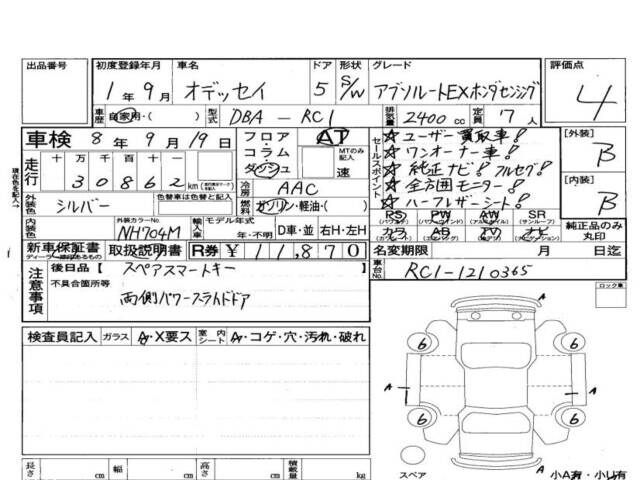 出品番号
初度登録年月 車名 ドア 形状 グレード 評価点
1年9月 オデッセイ 5 S/W アブソルートEXホンダセンシング 4
車歴 自家用・( ) 型式 DBA-RC1 排気量 2400cc 定員 7人
車検 8年9月19日
フロア・コラム・ダッシュ AT MTのみ記入 速
走行 十万 万 千 百 十 一
30862km
冷房 AAC
外装色 シルバー 色替車は色替と記入
燃料 ガソリン・軽油・( )
内装色 外装カラーNo. NH704M
輸入車 モデル年式 年・不明 D車・並 右H・左H
セールスポイント
☆ユーザー買取車!
☆ワンオーナー車!
☆純正ナビ!フルセグ!
☆全方囲モニター!
☆ハーフレザーシート!
PS PW AW SR
カワ AB TV ナビ
純正品のみ丸印
[外装] B
[内装] B
新車保証書 取扱説明書 R券 ¥11,870
名変期限 月 日迄
車台No. RC1-1210365
注意事項
後日品 [スペアスマートキー
不具合箇所等
両側パワースライドドア
ロック車
検査員記入 ガラス A・X要ス 室内シート A・コゲ・穴・汚れ・破れ
A
6 6
A A
6 6
スペア A
長さ cm 幅 cm 高さ cm 積載量 kg
小A有・小U有